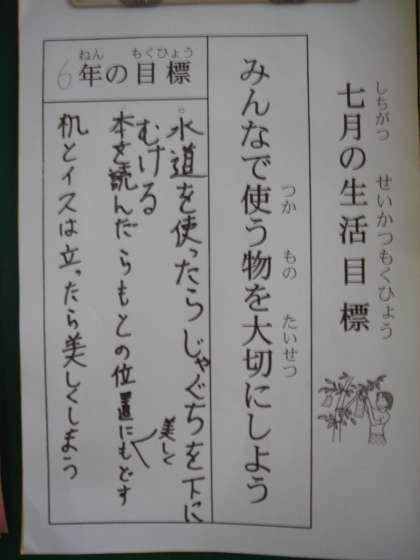 しちがつ せいかつもくひょう
七月の生活目標
つか もの たいせつ
みんなで使う物を大切にしよう
ねん もくひょう
6年の目標
水道を使ったらじゃぐちを下に
むける
本を読んだらもとの位置に美しくもどす
机とイスは立ったら美しくしまう